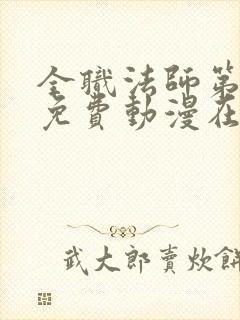 全職法師第
免費動漫在
武大郎賣炊餅